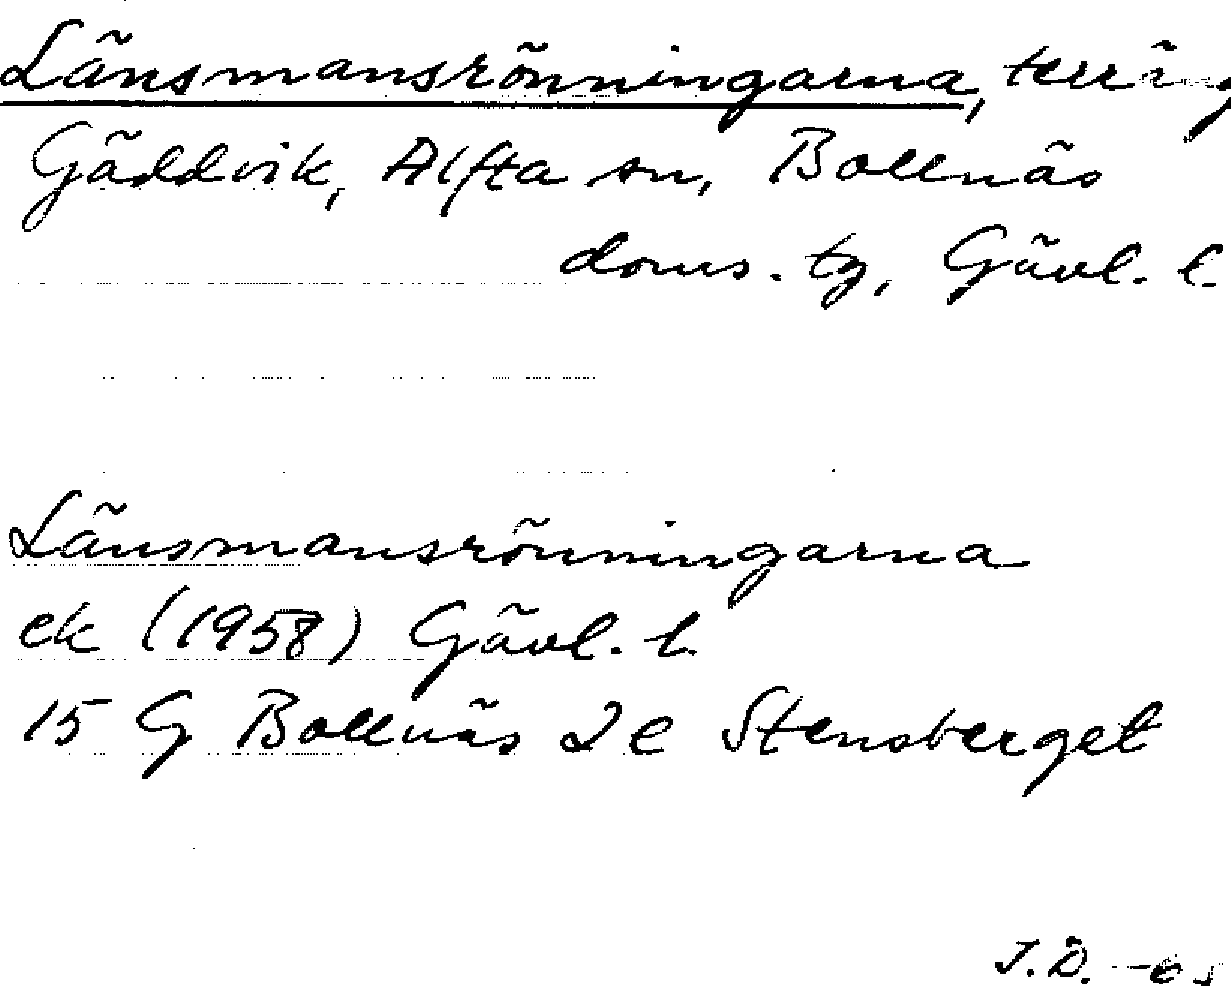 Länsmansrönningarna, terräng
Gäddvik, Alfta sn, Bollnäs
doms. tg, Gävl. l.
Länsmansrönningarna
ek (1958) Gävl. l.
15 G Bollnäs 2e Stensberget